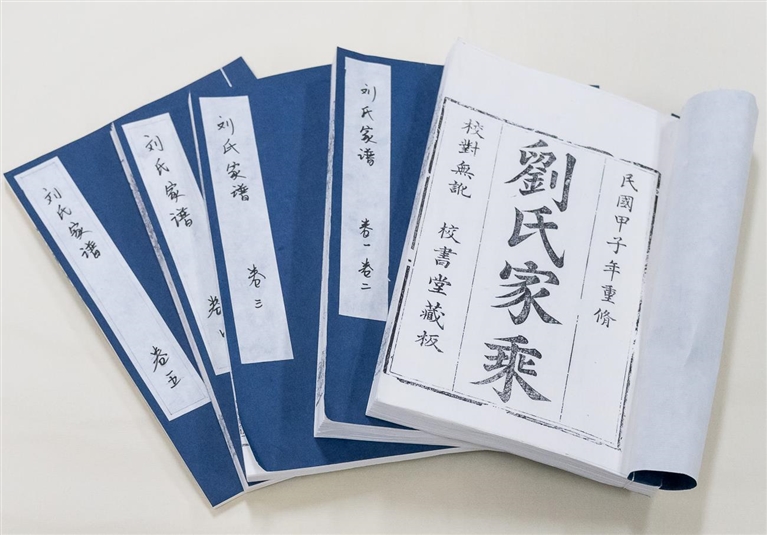 民國甲子年重脩
劉氏家乘
校對無訛 校書堂藏板
刘氏家谱 卷一卷二
刘氏家谱 卷三
刘氏家谱 卷
刘氏家谱 卷五